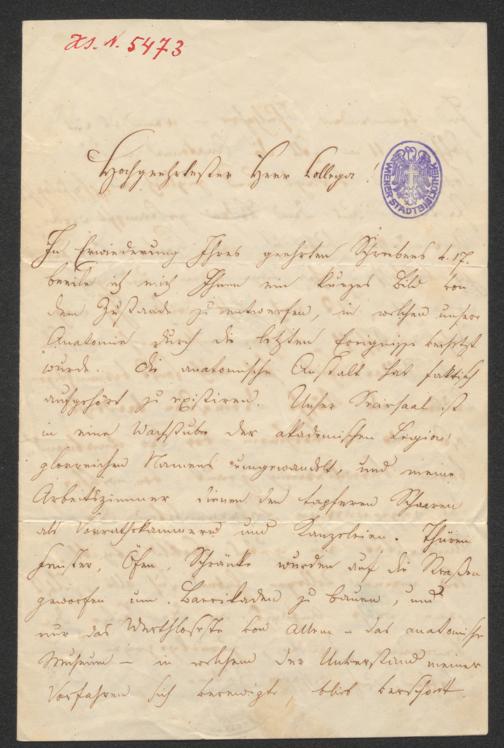 Hs. N. 5473
WIENER STADTBIBLIOTHEK
Hochgeehrtester Herr Collega
In Erwiederung Ihres geehrten Schreibens d. 17.
beeile ich mich Ihnen ein kurzes Bild von
dem Zustande zu entwerfen, in welchen unsere
Anatomie durch die letzten Ereignisse versetzt
wurde. Die anatomische Anstalt hat faktisch
aufgehört zu existiren. Unser Secirsaal ist
in eine Wachstube der akademischen Legion,
glorreichen Namens umgewandelt, und meine
Arbeitszimmer dienen den tapferen Schaaren
als Vorrathskammern und Kanzleien. Thüren
Fenster, Öfen, Schränke wurden auf die Straßen
geworfen um Barrikaden zu bauen, und
nur das Werthloseste von Allem – das anatomische
Museum – in welchem der Unverstand meiner
Vorfahren sich verewigte, blieb verschont.